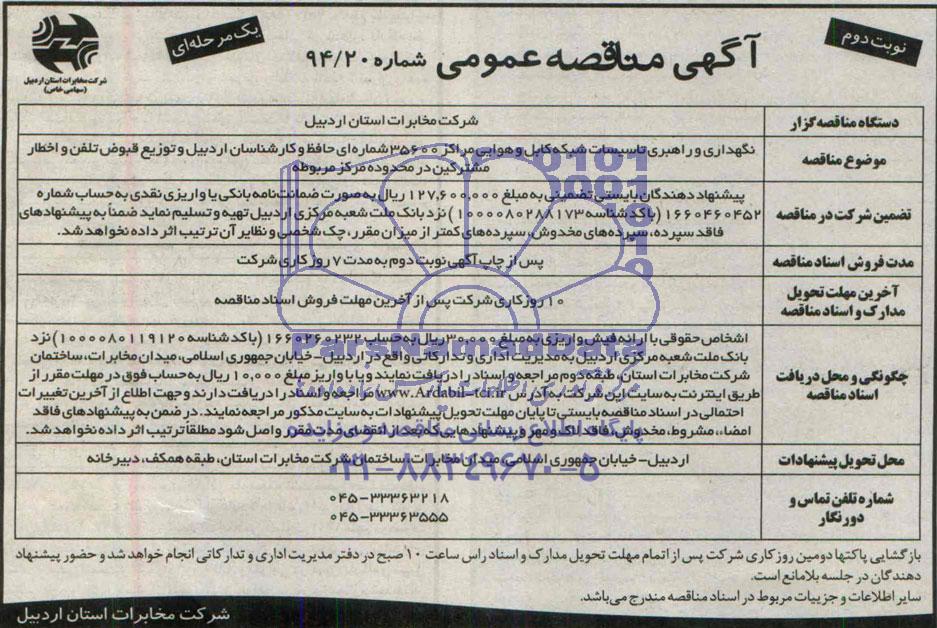 نوبت دوم
آگهی مناقصه عمومی شماره ۹۴/۲۰
یک مرحله‌ای
شرکت مخابرات استان اردبیل
(سهامی خاص)
دستگاه مناقصه گزار
شرکت مخابرات استان اردبیل
موضوع مناقصه
نگهداری و راهبری تاسیسات شبکه کابل و هوایی مراکز ۳۵۶۰۰ شماره ای حافظ و کارشناسان اردبیل و توزیع قبوض تلفن و اخطار
مشترکین در محدوده مرکز مربوطه
تضمین شرکت در مناقصه
پیشنهاد دهندگان بایستی تضمینی به مبلغ ۱۲۷,۶۰۰,۰۰۰ ریال به صورت ضمانت نامه بانکی یا واریزی نقدی به حساب شماره
۱۶۶۰۴۶۰۴۵۲ (با کد شناسه ۱۰۰۰۰۸۰۲۸۸۱۷۳) نزد بانک ملت شعبه مرکزی اردبیل تهیه و تسلیم نماید ضمناً به پیشنهادهای
فاقد سپرده، سپرده‌های مخدوش، سپرده‌های کمتر از میزان مقرر، چک شخصی و نظایر آن ترتیب اثر داده نخواهد شد.
مدت فروش اسناد مناقصه
پس از چاپ آگهی نوبت دوم به مدت ۷ روز کاری شرکت
آخرین مهلت تحویل
مدارک و اسناد مناقصه
۱۰ روز کاری شرکت پس از آخرین مهلت فروش اسناد مناقصه
چگونگی و محل دریافت
اسناد مناقصه
اشخاص حقوقی با ارائه فیش واریزی به مبلغ ۳۰,۰۰۰ ریال به حساب ۱۶۶۰۲۶۰۲۳۲ (با کد شناسه ۱۰۰۰۰۸۰۱۱۹۱۲۰) نزد
بانک ملت شعبه مرکزی اردبیل به مدیریت اداری و تدارکاتی واقع در اردبیل - خیابان جمهوری اسلامی، میدان مخابرات، ساختمان
شرکت مخابرات استان، طبقه دوم مراجعه و اسناد را دریافت نمایند و یا با واریز مبلغ ۱۰,۰۰۰ ریال به حساب فوق در مهلت مقرر از
طریق اینترنت به سایت این شرکت به آدرس www.Ardabil-tci.ir مراجعه و اسناد را دریافت دارند و جهت اطلاع از آخرین تغییرات
احتمالی در اسناد مناقصه بایستی تا پایان مهلت تحویل پیشنهادات به سایت مذکور مراجعه نمایند. در ضمن به پیشنهادهای فاقد
امضاء، مشروط، مخدوش، فاقد لاک و مهر و پیشنهادهایی که بعد از انقضای مدت مقرر واصل شود مطلقا ترتیب اثر داده نخواهد شد.
محل تحویل پیشنهادات
اردبیل - خیابان جمهوری اسلامی، میدان مخابرات، ساختمان شرکت مخابرات استان، طبقه همکف، دبیرخانه
شماره تلفن تماس و
دورنگار
۰۴۵-۳۳۳۶۳۲۱۸
۰۴۵-۳۳۳۶۳۵۵۵
بازگشایی پاکتها دومین روز کاری شرکت پس از اتمام مهلت تحویل مدارک و اسناد راس ساعت ۱۰ صبح در دفتر مدیریت اداری و تدارکاتی انجام خواهد شد و حضور پیشنهاد
دهندگان در جلسه بلامانع است.
سایر اطلاعات و جزییات مربوط در اسناد مناقصه مندرج می‌باشد.
شرکت مخابرات استان اردبیل
ParsNamadData
پایگاه اطلاع رسانی مناقصه و مزایده
۰۲۱-۸۸۳۴۹۶۷۰-۵